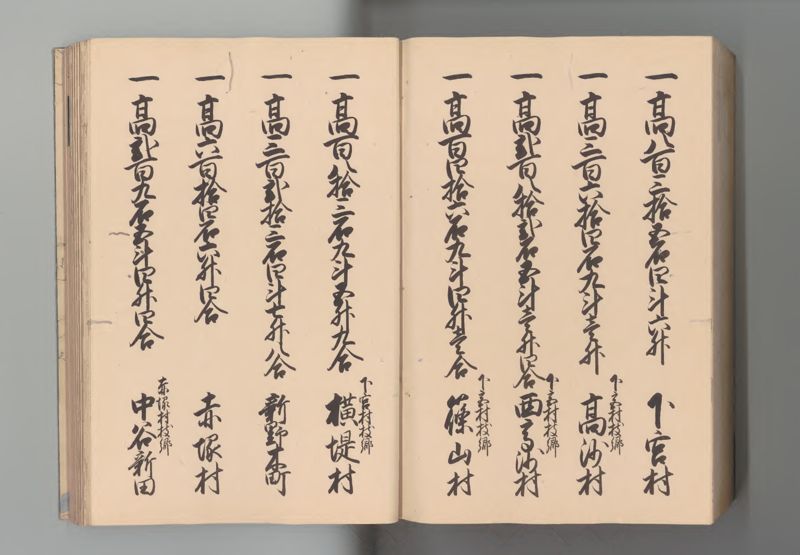 一 高八百三拾五石四斗六升
下宮村
一 高三百六拾四石九斗三升
下宮村枝郷
高沙村
一 高弐百八拾弐石五斗壱升四合
下宮村枝郷
西高沙村
一 高百四拾六石九斗四升壱合
下宮村枝郷
篠山村
一 高百八拾三石九斗五升九合
下宮村枝郷
横堤村
一 高三百弐拾三石四斗七升八合
新野町
一 高六百拾四石六升四合
赤塚村
一 高弐百九石五斗四升四合
赤塚村枝郷
中谷新田